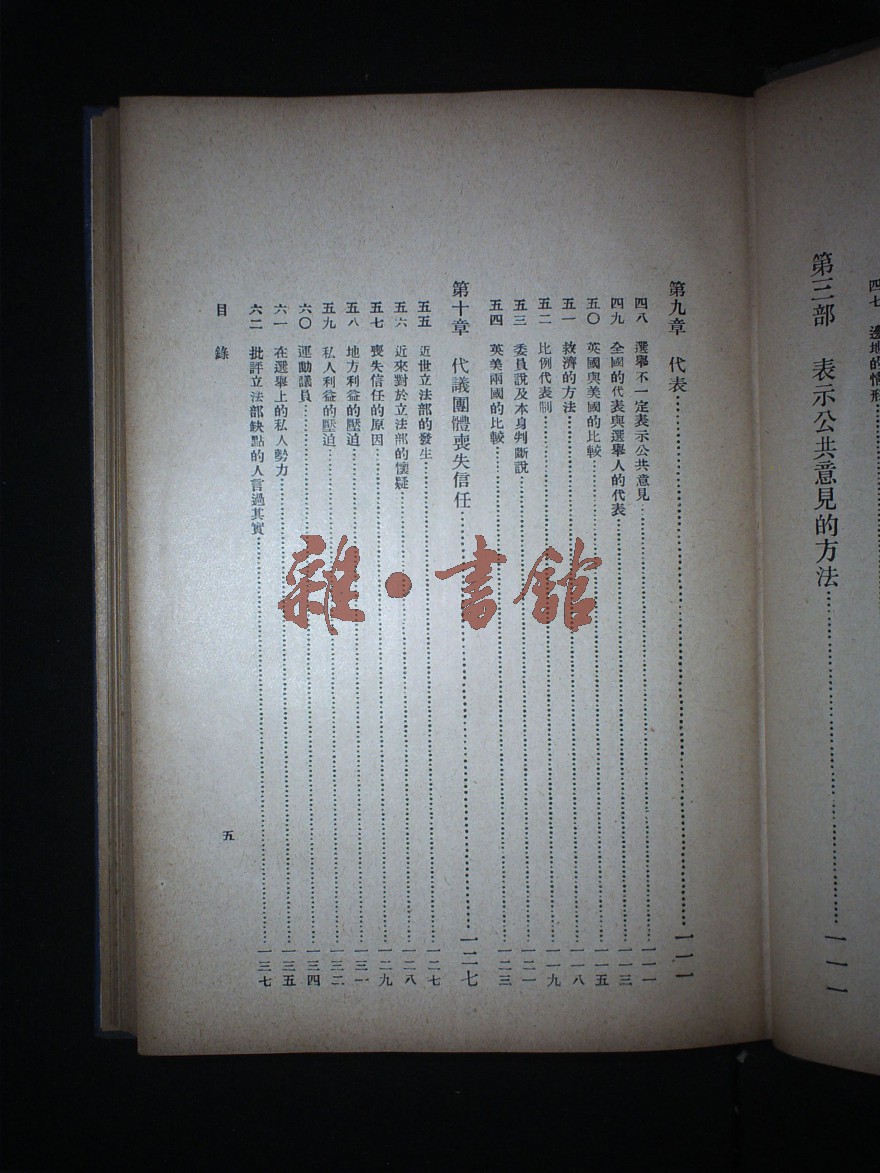 四七 邊地的情形
第三部 表示公共意見的方法 一一一
第九章 代表 一一一
四八 選舉不一定表示公共意見 一一一
四九 全國的代表與選舉人的代表 一一三
五〇 英國與美國的比較 一一五
五一 救濟的方法 一一八
五二 比例代表制 一一九
五三 委員說及本身判斷說 一二一
五四 英美兩國的比較 一二三
第十章 代議團體喪失信任 一二七
五五 近世立法部的發生 一二七
五六 近來對於立法部的懷疑 一二八
五七 喪失信任的原因 一二九
五八 地方利益的壓迫 一三一
五九 私人利益的壓迫 一三二
六〇 運動議員 一三四
六一 在選舉上的私人勢力 一三五
六二 批評立法部缺點的人言過其實 一三七
目錄
五
雜·書館